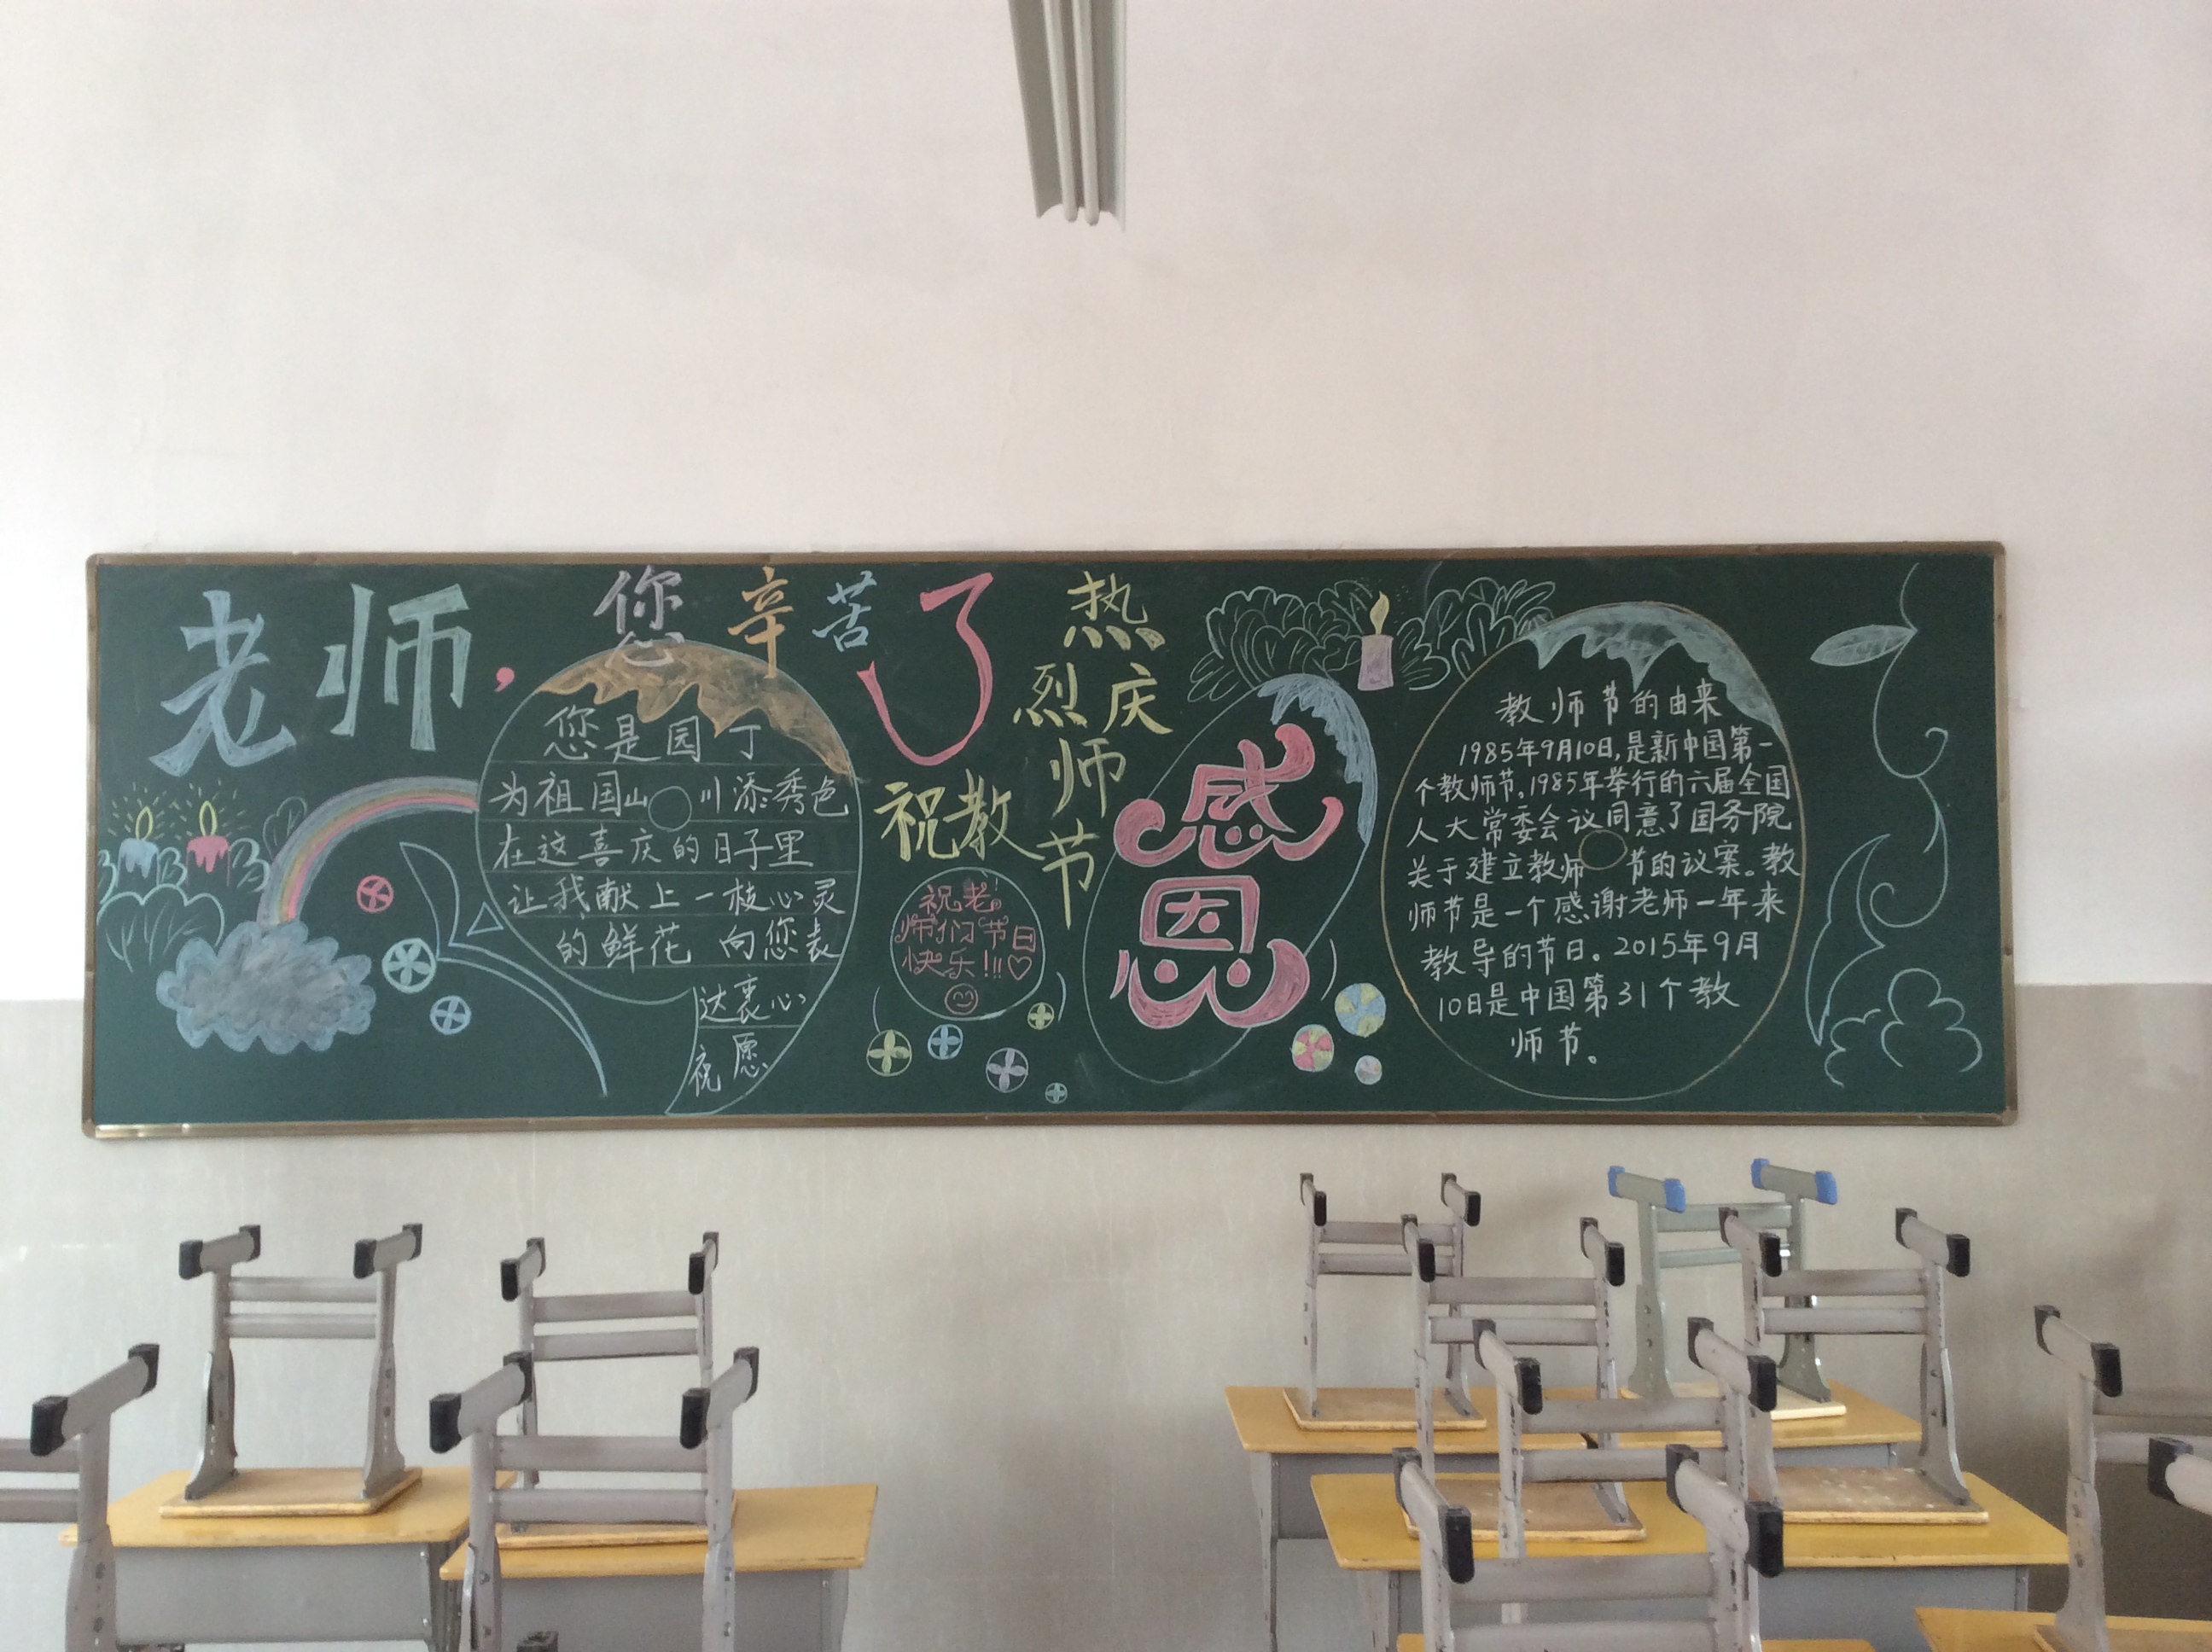 老师,您辛苦了
您是园丁
为祖国山川添秀色
在这喜庆的日子里
让我献上一枝心灵
的鲜花 向您表
达衷心
祝愿
热
烈庆
祝教师
节
祝老
师们节日
快乐!!!
感
恩
教师节的由来
1985年9月10日,是新中国第一
个教师节。1985年举行的六届全国
人大常委会议同意了国务院
关于建立教师节的议案。教
师节是一个感谢老师一年来
教导的节日。2015年9月
10日是中国第31个教
师节。